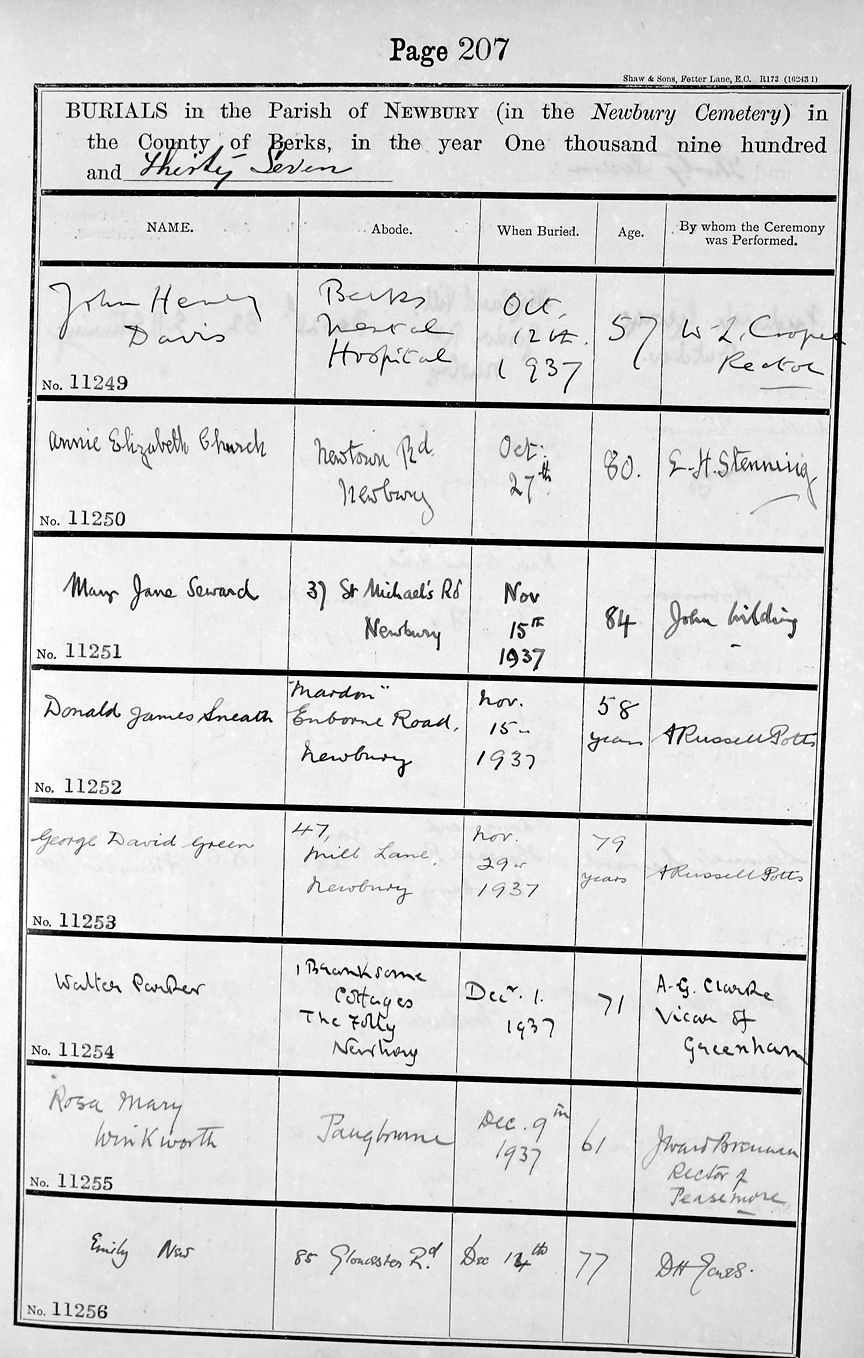 Page 207
Shaw & Sons, Fetter Lane, E.C. R173 (16243 1)
BURIALS in the Parish of NEWBURY (in the Newbury Cemetery) in
the County of Berks, in the year One thousand nine hundred
and Thirty Seven
NAME. Abode. When Buried. Age. By whom the Ceremony
was Performed.
John Henry
Davis
No. 11249
Berks
Mental
Hospital
Oct.
12th.
1937
57
W. L. Cooper
Rector
Annie Elizabeth Church
No. 11250
Newtown Rd
Newbury
Oct:
27th
80.
E. H. Stenning
Mary Jane Seward
No. 11251
37 St Michael's Rd
Newbury
Nov
15th
1937
84
John
Donald James Sneath
No. 11252
"Mardon"
Enborne Road,
Newbury
Nov.
15
1937
58
years
A Russell Potts
George David Green
No. 11253
47,
Mill Lane,
Newbury
Nov.
29
1937
79
years
A Russell Potts
Walter Parker
No. 11254
1 Branksome
Cottages
The Folly
Newbury
Decr. 1.
1937
71
A. G. Clarke
Vicar of
Greenham
Rosa Mary
Winkworth
No. 11255
Pangbourne
Dec. 9th
1937
61
J Ward Brennan
Rector of
Peasemore
Emily New
No. 11256
85 Gloucester Rd.
Dec 14th
77
D H Jones.